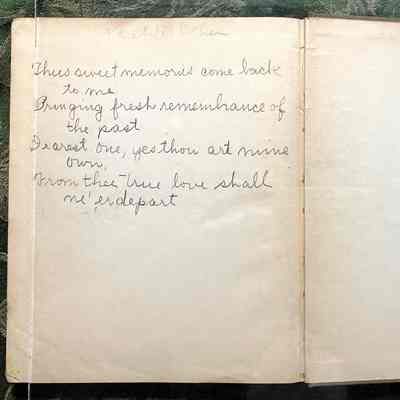 Thus sweet memories come back
to me
Bringing fresh remembrance of
the past
Dearest one, yes thou art mine
own,
From thee true love shall
ne'er depart